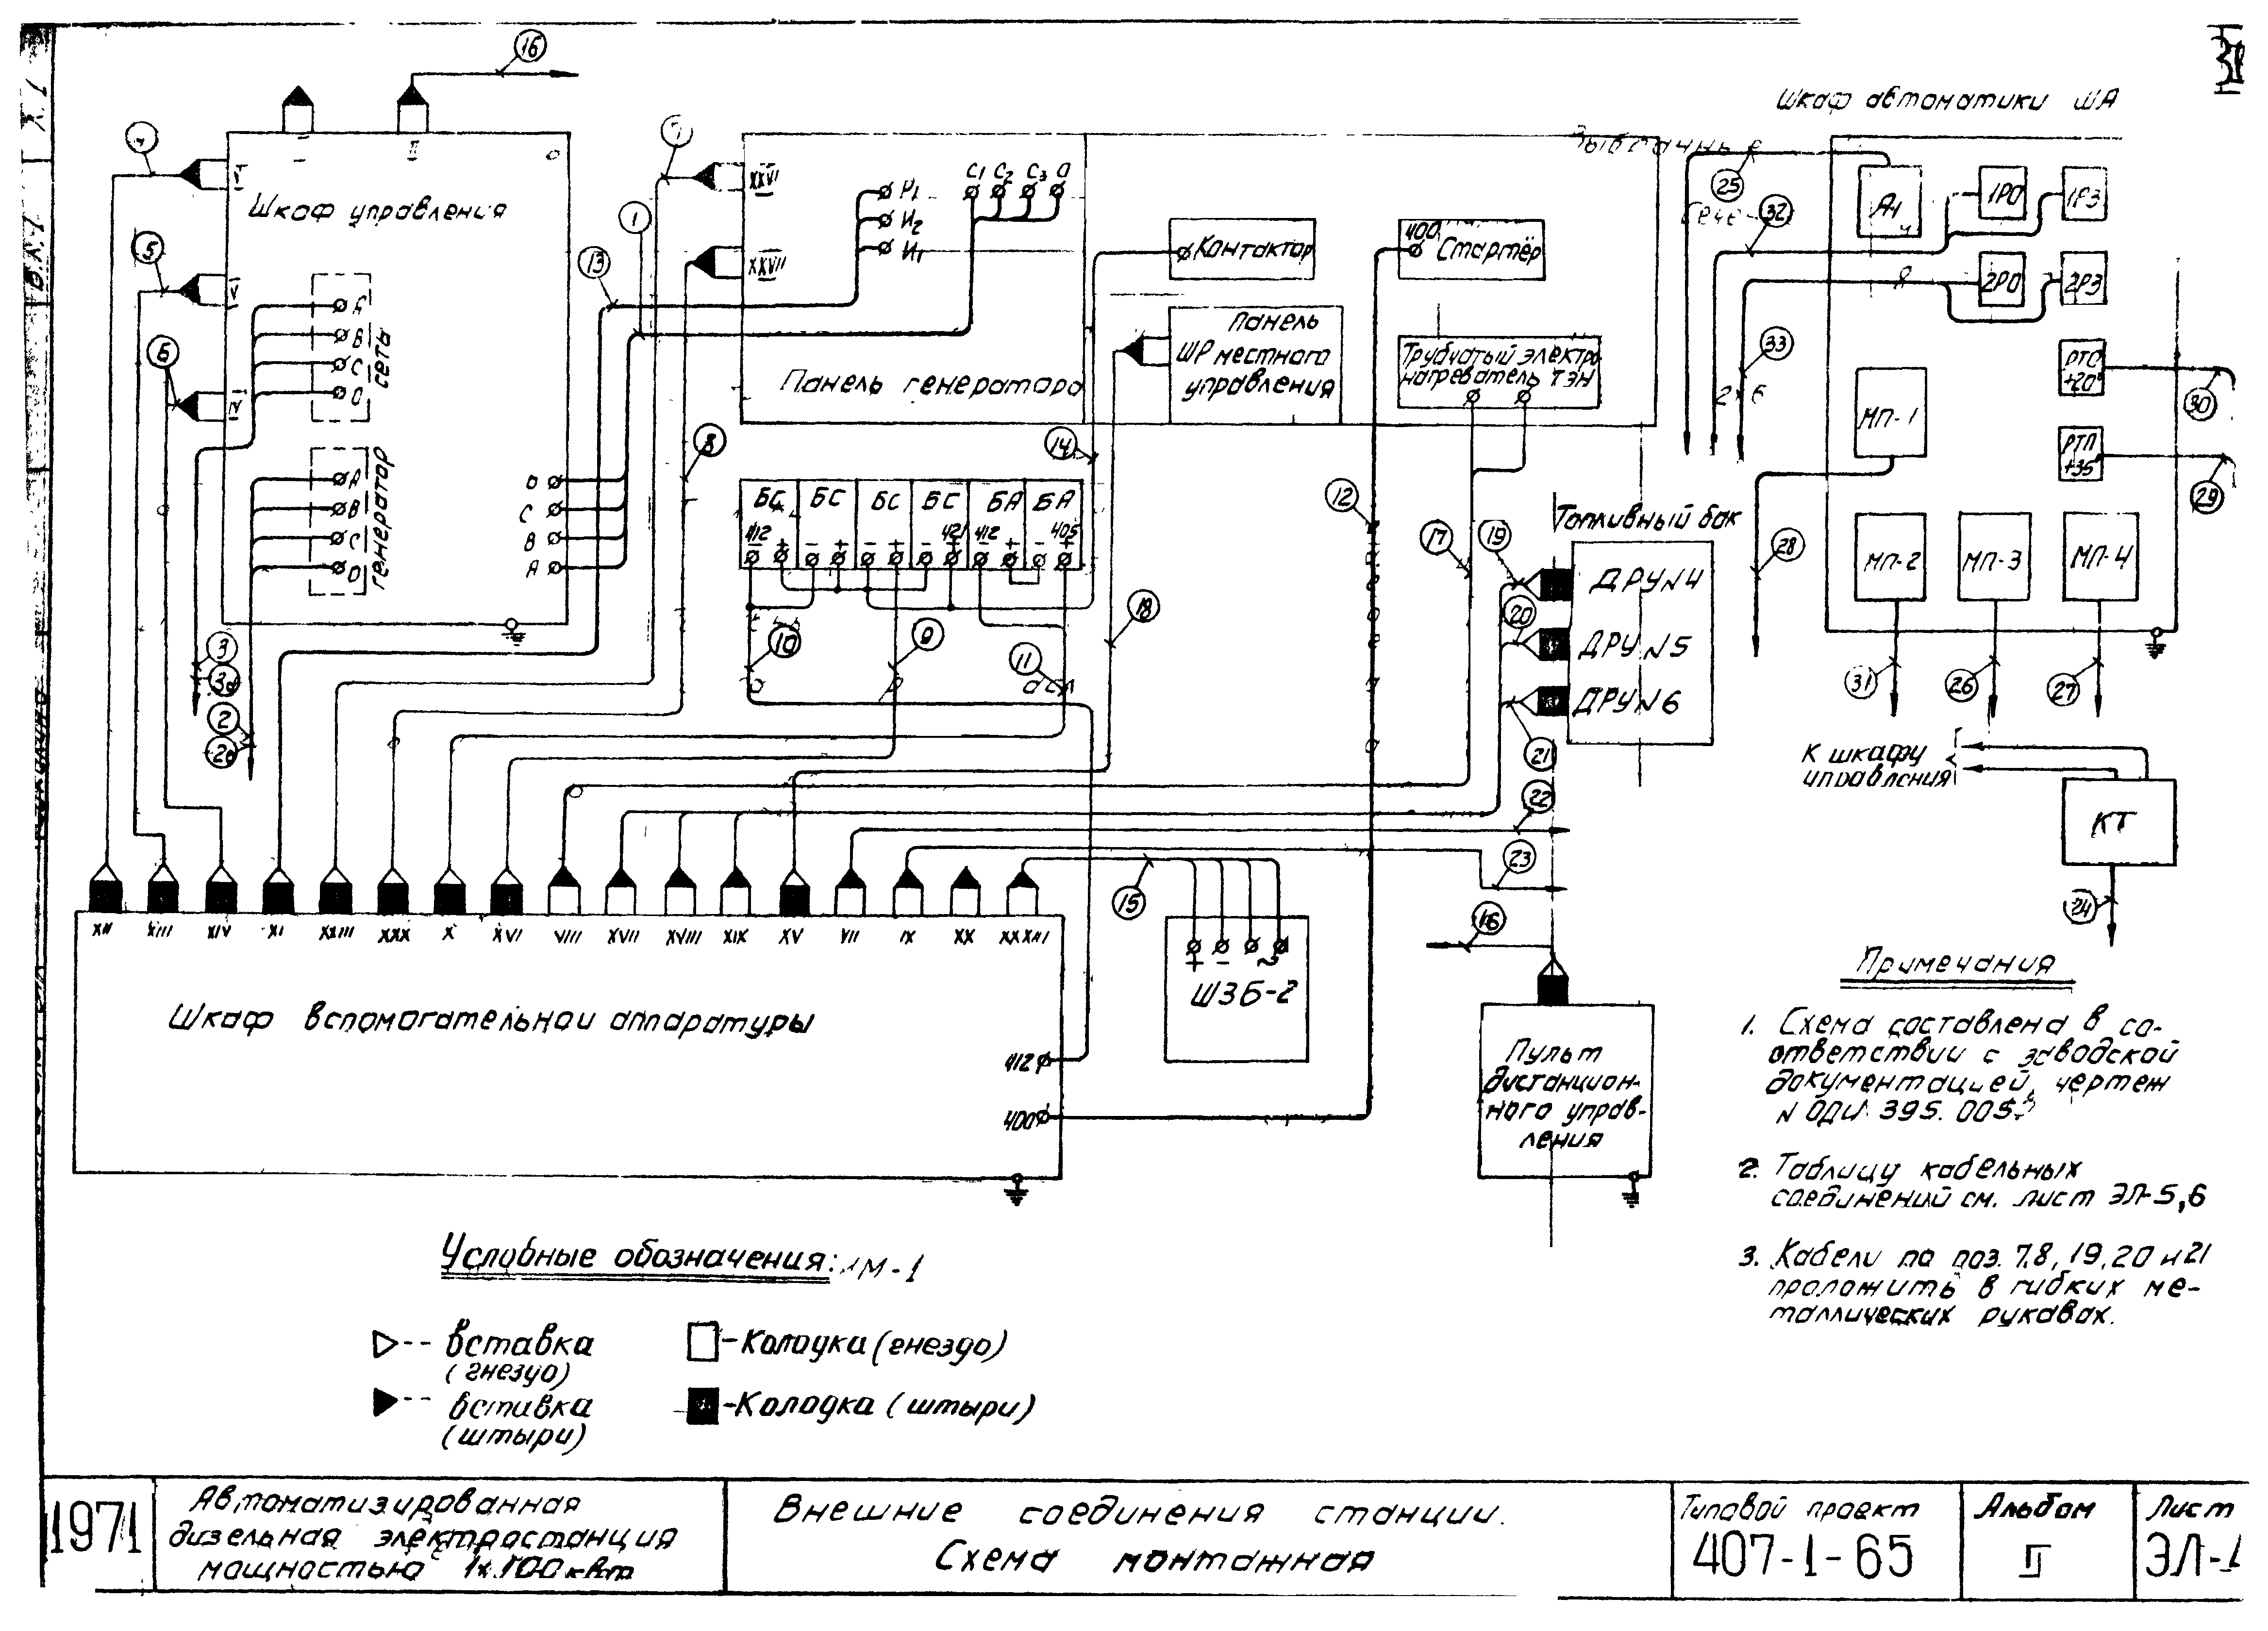 Шкаф управления
сеть
генератор
А
В
С
О
А
В
С
О
О
С
В
А
И2
И1
С1 С2 С3 О
XXVI
XXVII
Панель генератора
Контактор
400
Стартёр
Панель
ШР местного
управления
Трубчатый электро
нагреватель ТЭН
БС БС БС БС БА БА
412 421 412 405
- + - + - + - + - + - +
Топливный бак
ДРУ№4
ДРУ№5
ДРУ№6
Шкаф автоматики ША
1РО
1РЗ
2РО
2РЗ
РТО
+20°
РТП
+35°
МП-1
МП-2
МП-3
МП-4
К шкафу
управления
КТ
1
2
3
5
6
8
9
10
11
12
13
14
15
16
16
17
18
19
20
21
22
23
24
25
26
27
28
29
30
31
32
33
XII XIII XIV XI XXIII XXX X XVI VIII XVII XVIII XIX XV VII IX XX
Шкаф вспомогательной аппаратуры
412
400
+ - ~
ШЗБ-2
Пульт
дистанцион-
ного управ-
ления
Примечания
1. Схема составлена в со-
ответствии с заводской
документацией, чертеж
2. Таблицу кабельных
соединений см. лист ЭЛ-5,6
3. Кабели по поз. 7,8,19,20 и 21
проложить в гибких ме-
таллических рукавах.
Условные обозначения:
вставка
(гнездо)
вставка
(штыри)
-Колодка (гнездо)
-Колодка (штыри)
1971
Автоматизированная
дизельная электростанция
мощностью 1х100 квт
Внешние соединения станции.
Схема монтажная
Типовой проект
407-1-65
Альбом
II
Лист
ЭЛ-1